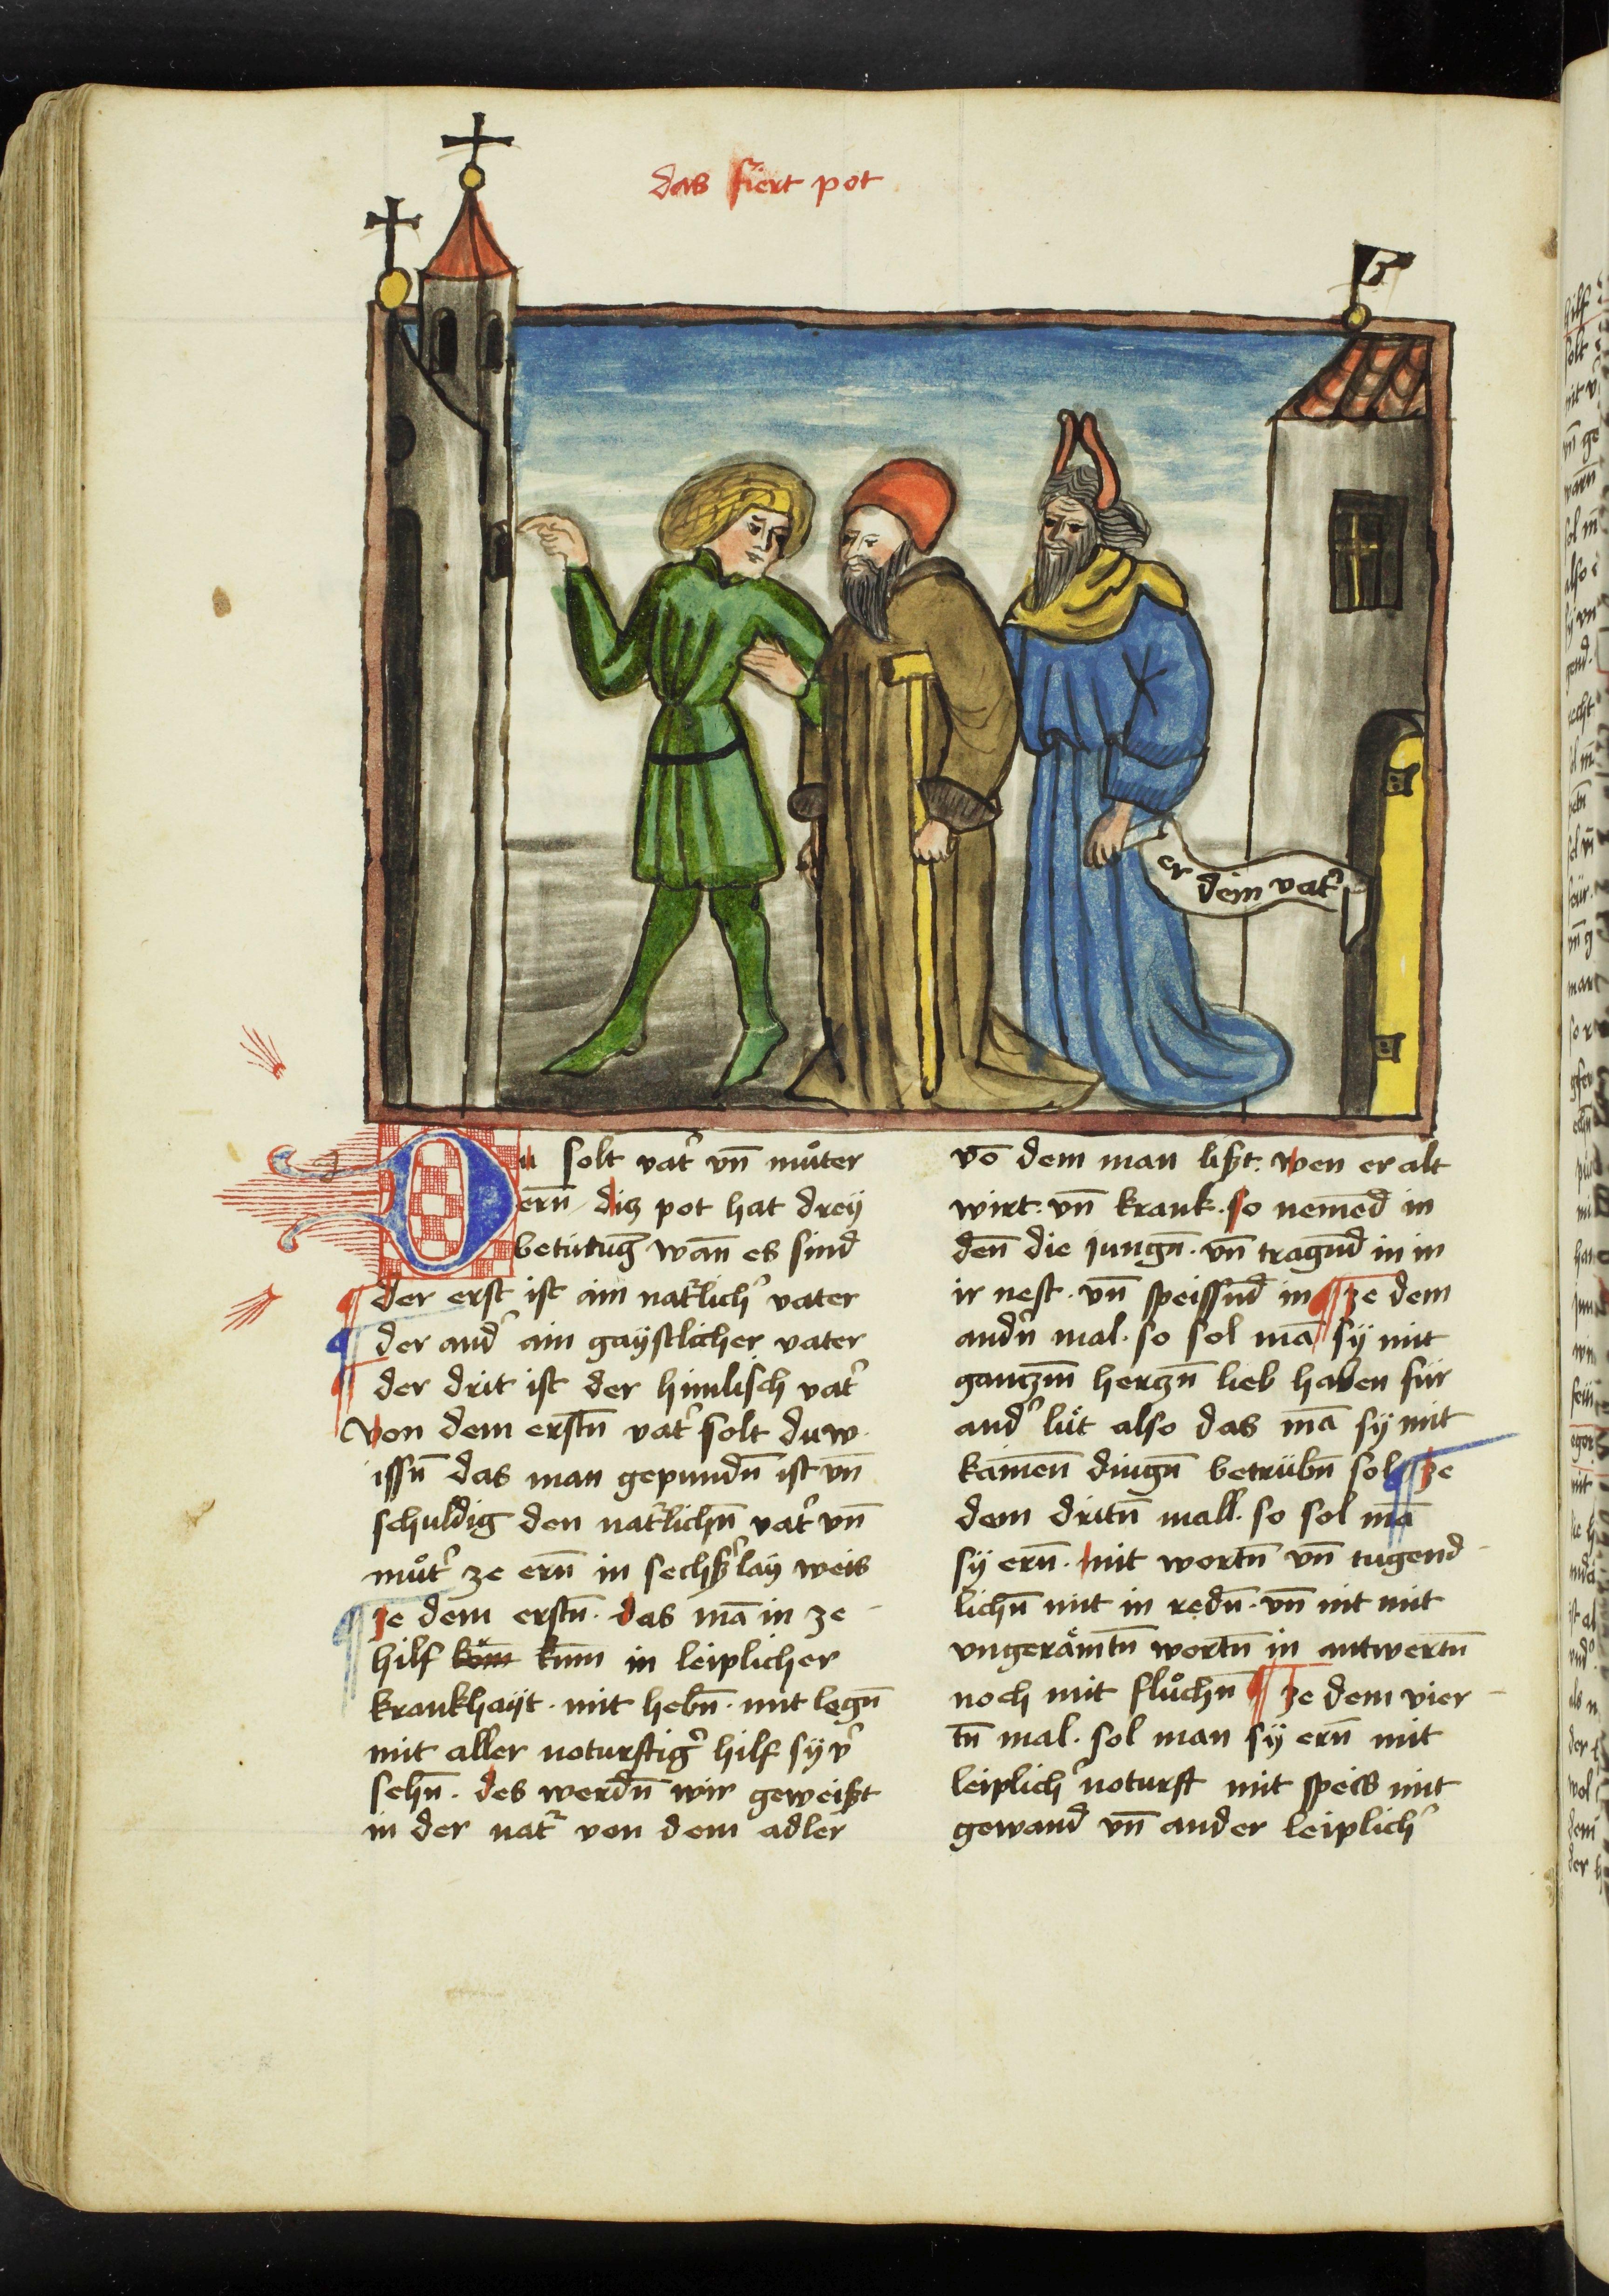 das fiert pot
er dein vat᷑
Du solt vat᷑ vn̄ muͦter
ern̄ diz pot hat dreÿ
betütuḡ wan̄ es sind
¶ der erst ist ain nat᷑lich᷑ vater
¶ der and᷑ ain gaÿstlicher vater
¶ der drit ist der himlisch vat᷑
Von dem erstn̄ vat᷑ solt du w
issn̄ das man gepundn̄ ist vn̄
schuldig den nat᷑lichn̄ vat᷑ vn̄
muͦt᷑ ze ern̄ in sechß᷑laÿ weis
¶ ze dem erstn̄. das mā in ze
hilf kom̄ kum̄ in leiplicher
krankhaÿt. mit hebn̄. mit legn̄
mit aller noturftig᷑ hilf sÿ v᷑
sehn̄. des werdn̄ wir geweißt
in der nat᷑ von dem adler
vō dem man lißt. wen er alt
wirt. vn̄ krank. so nemēd in
den̄ die jungn̄. vn̄ tragn̄d in in
ir nest. vn̄ speissn̄d in ¶ ze dem
andn̄ mal. so sol mā sÿ mit
ganczm̄ herczn̄ lieb haben für
and᷑ lüt also das mā sÿ mit
kainen̄ dingn̄ betrübn̄ sol ¶ ze
dem dritn̄ mall. so sol mā
sÿ ern̄. mit wortn̄ vn̄ tugend
lichn̄ mit in redn̄. vn̄ nit mit
vngeraͤmtn̄ wortn̄ in antwertn̄
noch mit fluͦchn̄ ¶ ze dem vier
tn̄ mal. sol man sÿ ern̄ mit
leiplich᷑ noturft mit speis mit
gewand vn̄ ander leiplich᷑